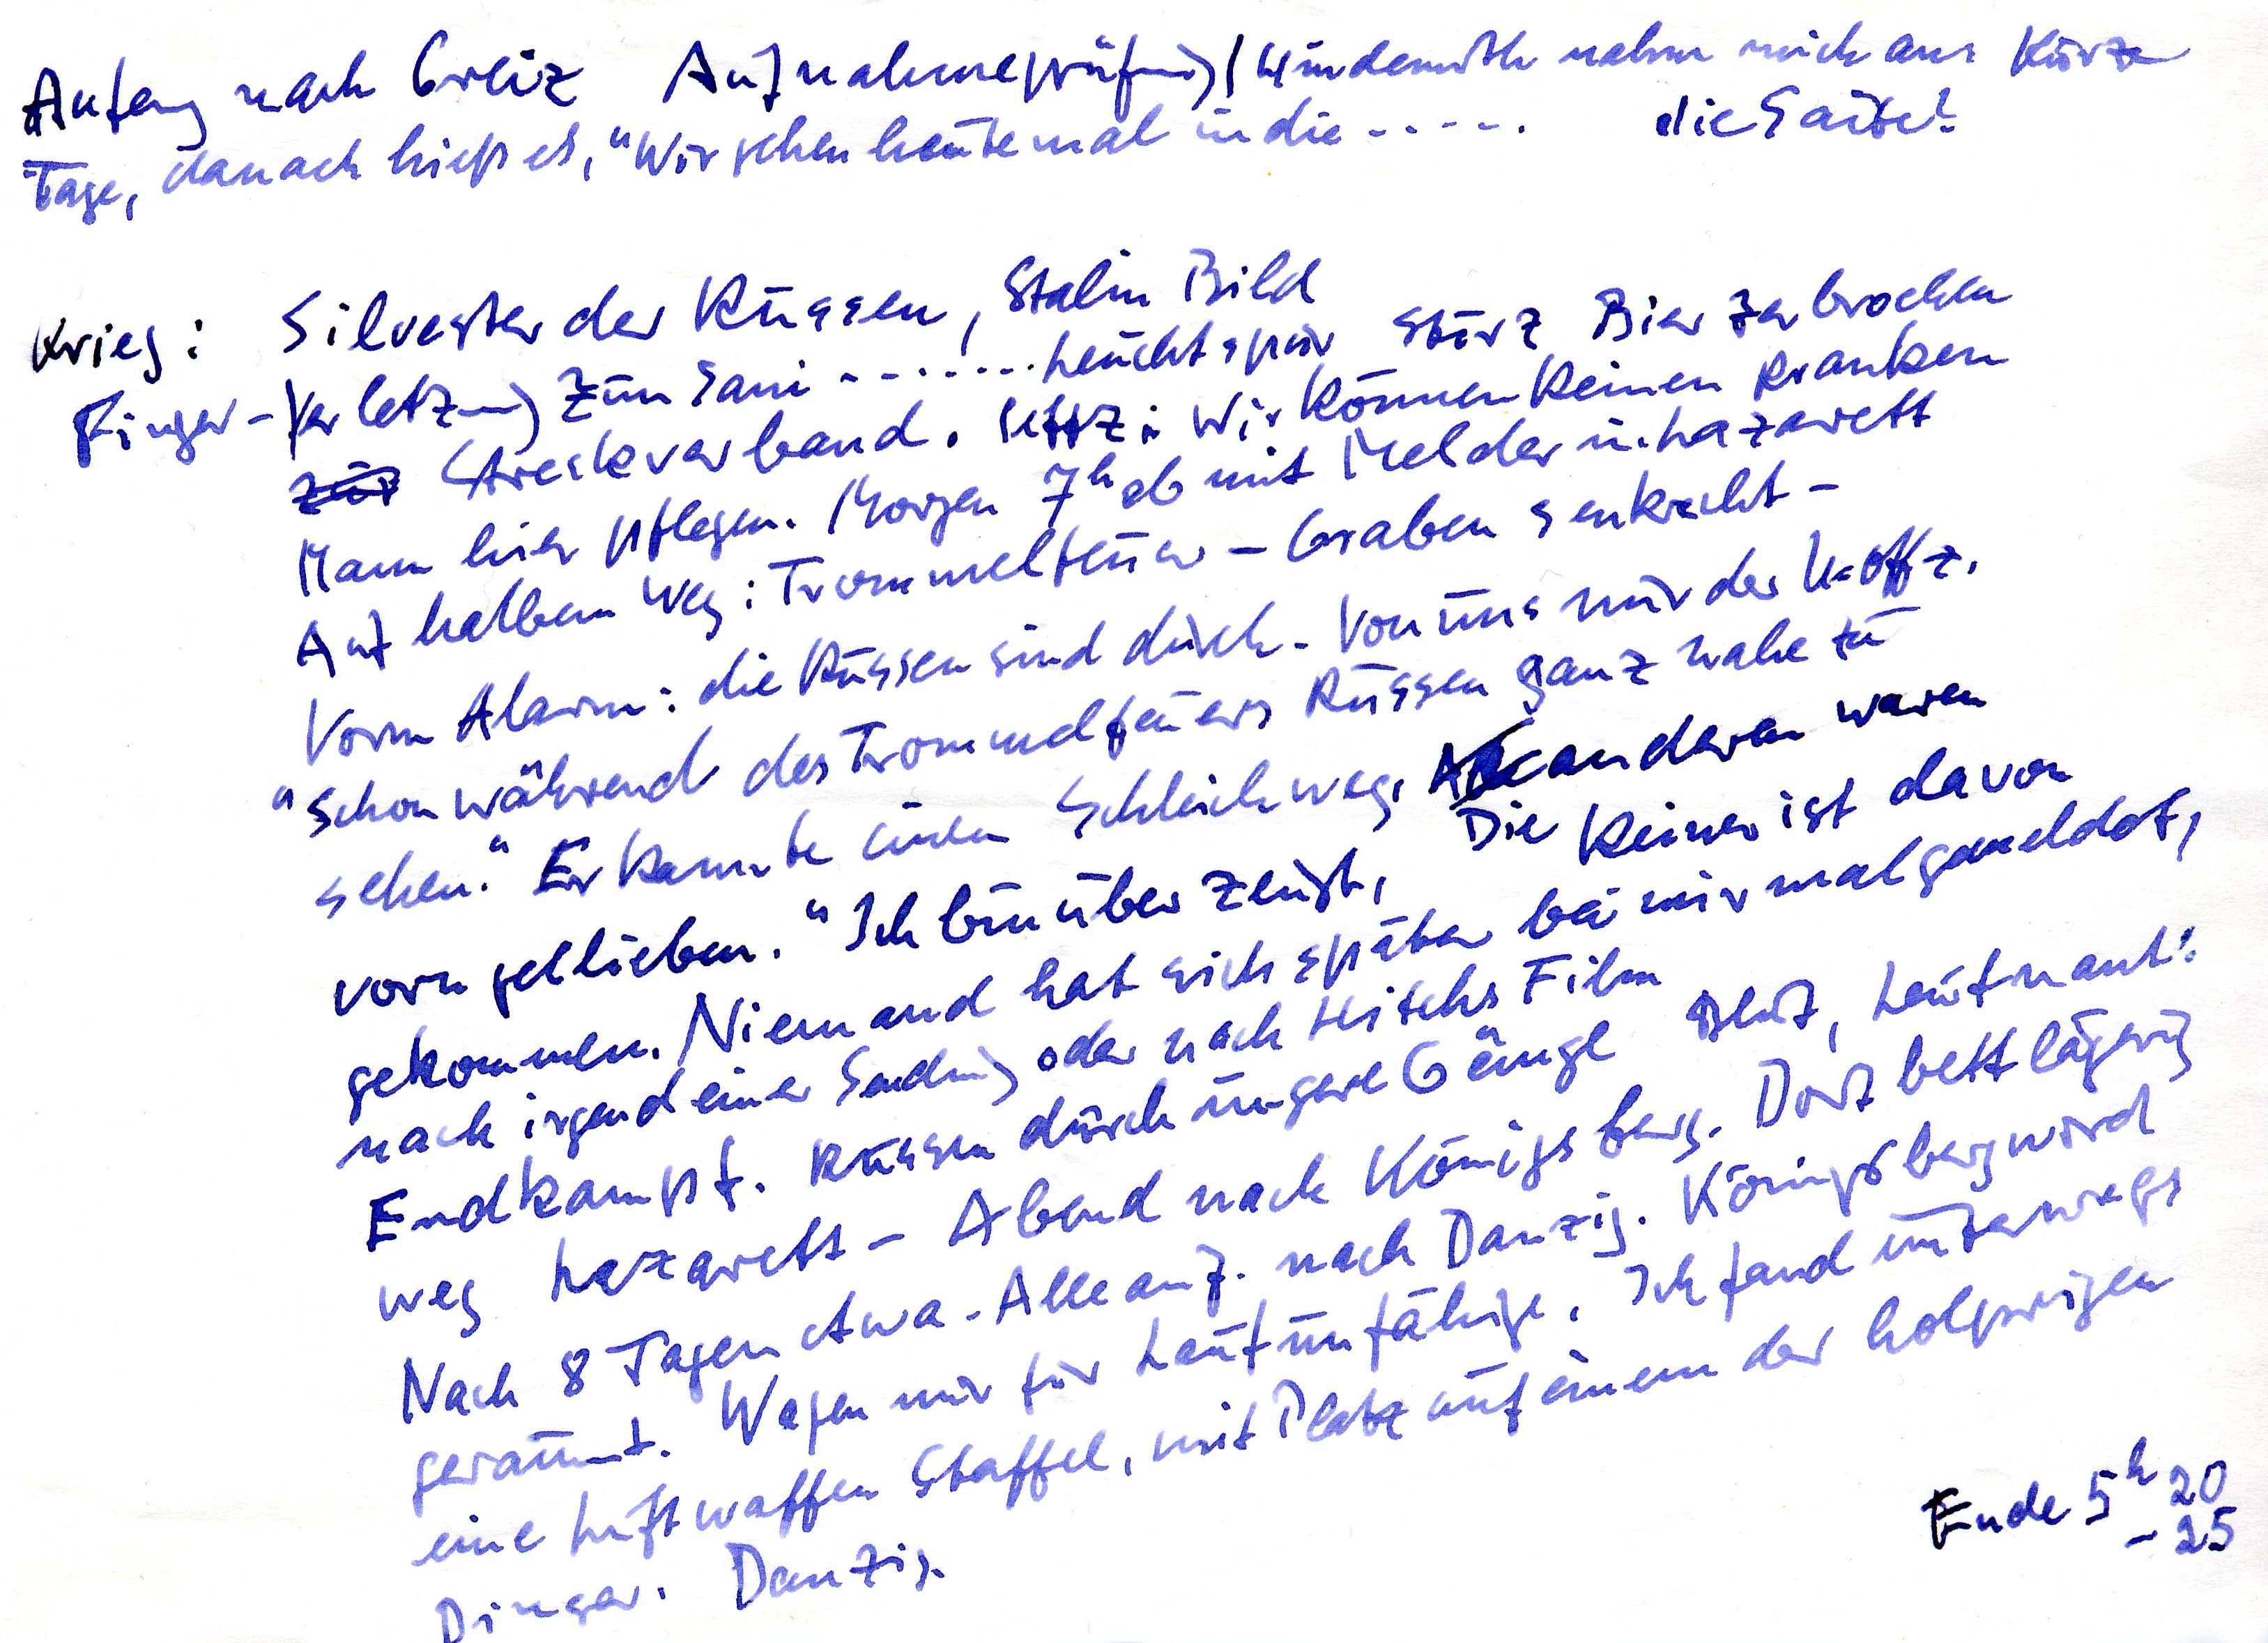 Anfang nach Greiz Aufnahmeprüfung / Hindemith nahm mich an. Kürze
Tage, danach hieß es, "Wir gehen heute mal in die - - - - - . die Saite!
Krieg: Silvester der Russen, Stalin Bild
Finger-Verletzung zum Sani - - - - - - - Leuchtspur Sturz Bier zerbrochen
zur Streckverband. Uffz: Wir können keinen kranken
Mann hier pflegen. Morgen 7h ab mit Melder in. Lazarett
Auf halbem Weg: Trommelfeuer - Graben senkrecht -
Vorn Alarm: die Russen sind durch - Von uns nur der U-Offz.
"Schon während des Trommelfeuers Russen ganz nahe zu
sehen." Er kannte einen Schleichweg. Die anderen waren
vorn geblieben. "Ich bin überzeugt, Keiner ist davon
gekommen. Niemand hat sich später bei mir mal gemeldet,
nach irgendeiner Sendung oder nach Film
Endkampf. Russen durch unsere Gänge Blut, Leutnant:
weg Lazarett - Abend nach Königsberg. Dort bettlägerig
Nach 8 Tagen etwa - Alle auf. nach Danzig. Königsberg wird
geräumt. Wagen nur für Laufunfähige. Ich fand unterwegs
eine Luftwaffen Staffel, mit Platz auf einem der holprigen
Dinger. Danzig.
Ende 5h 20
- 25